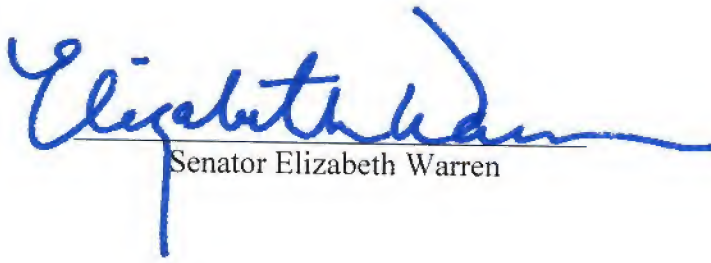 Elizabeth Warren
Senator Elizabeth Warren